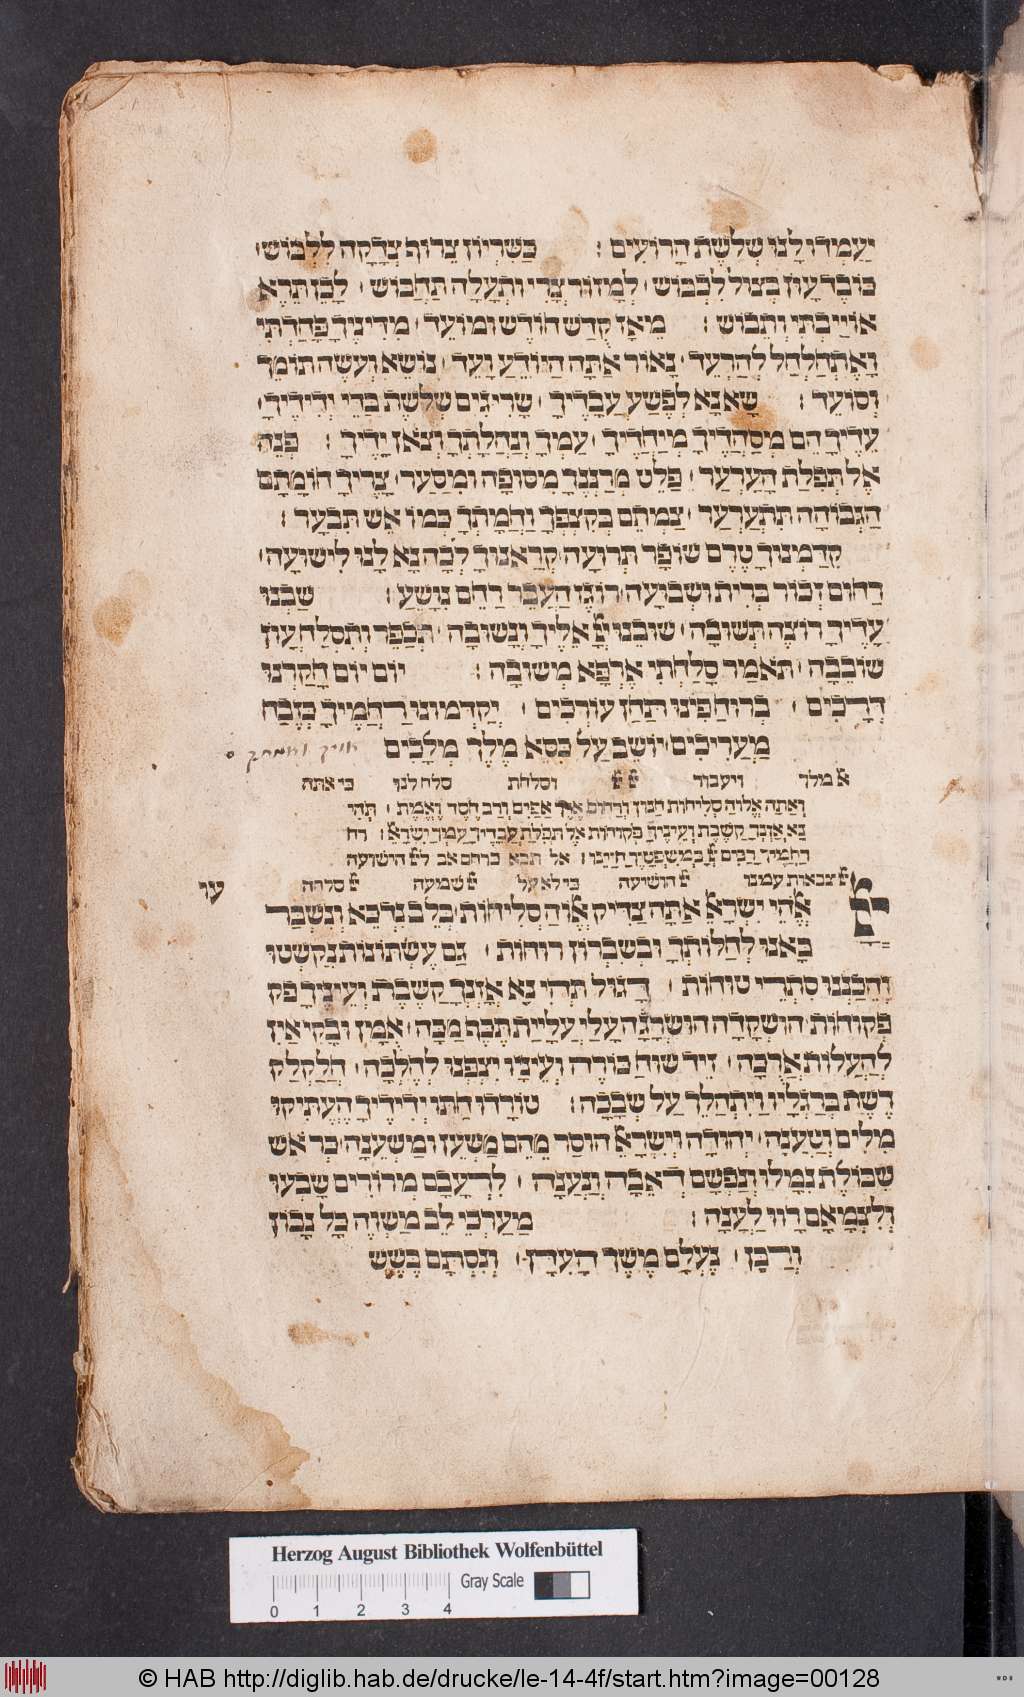 יַעַמְדוּ לָנוּ שְׁלֹשֶׁת הָרוֹעִים : כַּשִּׁרְיוֹן צֵרוּף צְדָקָה לִלְבּוֹשׁ
כּוֹבֶד עָוֹן בְּצוּל לִכְבּוֹשׁ לְמָזוֹר צָרַי וּתְעָלָה תַּחֲבוֹשׁ לָכֵן תֵּרֶא
אוֹיַיבְתִּי וְתֵבוֹשׁ : מֵאָז קֻדַּשׁ חוֹדֶשׁ וּמוֹעֵד מִדִּינְךָ פָּחַדְתִּי
וָאֶתְחַלְחַל לְהֵרָעֵד נָאוֹר אַתָּה הַיּוֹדֵעַ וָעֵד נוֹשֵׂא וְעֹשֶׂה תּוֹמֵךְ
וְסוֹעֵד : שָׂא נָא לְפֶשַׁע עֲבָדֶיךָ שָׂרִיגִים שְׁלֹשֶׁת בַּדֵּי יְדִידֶיךָ
עֵדֶיךָ הֵם מְסַהֲדֶיךָ מְיַחֲדֶיךָ עַמְּךָ וְנַחֲלָתְךָ וְצֹאן יָדֶיךָ : פְּנֵה
אֶל תְּפִלַּת הָעַרְעָר פַּלֵּט מְרַנְּנֶךָ מִסּוּפָה וּמִסַּעַר צָרֶיךָ חוֹמָתָם
הַגְּבוֹהָה תִּתְעַרְעָר צַמְּתֵם בְּקִצְפְּךָ וַחֲמָתְךָ כְּמוֹ אֵשׁ תִּבְעָר :
קִדַּמְנוּךָ טֶרֶם שׁוֹפָר תְּרוּעָה קְרָאנוּךָ לְכָה נָא לָנוּ לִישׁוּעָה
רַחוּם זְכוֹר בְּרִית וּשְׁבוּעָה רוֹגֶז הַעֲבֵר רַחֵם נִוָּשֵׁעַ : שַׁבְנוּ
עָדֶיךָ רוֹצֶה תְשׁוּבָה שׁוּבֵנוּ יְיָ אֵלֶיךָ וְנָשׁוּבָה תְּכַפֵּר וְתִסְלַח עָוֹן
שׁוֹבֵבָה תֹּאמַר סָלַחְתִּי אֶרְפָּא מְשׁוּבָה : יוֹם יוֹם חֲקַרְנוּ
דְּרָכִים בְּרוּחֵינוּ תַחַן עוֹרְכִים יְקַדְּמוּנוּ רַחֲמֶיךָ כְּזֶבַח
מַעֲרִיכִים יוֹשֵׁב עַל כִּסֵּא מֶלֶךְ מְלָכִים
אל מלך ויעבור יי יי וסלחת סלח לנו כי אתה
וְאַתָּה אֱלוֹהַּ סְלִיחוֹת חַנּוּן וְרַחוּם אֶרֶךְ אַפַּיִם וְרַב חֶסֶד וֶאֱמֶת תְּהִי
נָא אָזְנְךָ קַשֶּׁבֶת וְעֵינֶיךָ פְּקוּחוֹת אֶל תְּפִלַּת עֲבָדֶיךָ עַמְּךָ יִשְׂרָאֵל : רח
רַחֲמֶיךָ רַבִּים יְיָ כְּמִשְׁפָּטֶיךָ חַיֵּינוּ : אל תבא כרחם אב ליי הישועה
יי צבאות עמנו יי הושיעה כי לא על יי שמעה יי סלחה
עו
יְיָ אֱלֹהֵי יִשְׂרָאֵל אַתָּה צַדִּיק אֱלוֹהַּ סְלִיחוֹת בְּלֵב נִדְכֶּא וְנִשְׁבָּר
בָּאנוּ לְחַלּוֹתְךָ וּבְשִׁבְרוֹן רוּחוֹת גַּם עֶשְׁתּוֹנוֹת נֻקְשְׁטוּ
וְהֵכַנּוּ סִתְרֵי טוּחוֹת דָּגוּל תְּהִי נָא אָזְנְךָ קַשֶּׁבֶת וְעֵינֶיךָ פק
פְּקוּחוֹת הוּשְׁקָדָה הוּשְׂרָגָה עָלַי עֲלִיַּת תֵּכֶף מַכָּה אַמִּין וּבָקִי אֵין
לְהַעֲלוֹת אֲרֻכָה זֵיד שׁוּחַ כּוֹרֶה וְעֵינָיו יִצְפְּנוּ לְחֵלְכָה חֲלַקְלַק
רֶשֶׁת בְּרַגְלָיו וַיִּתְהַלֵּךְ עַל שְׂבָכָה : טוֹרְדוּ חַתּוּ יְדִידֶיךָ הֶעְתִּיקוּ
מִלִּים וְטַעֲנָה יְהוּדָה וְיִשְׂרָאֵל הוּסַר מֵהֶם מַשְׁעֵן וּמַשְׁעֵנָה כְּרֹאשׁ
שִׁבּוֹלֶת נִמְּלוּ וְנַפְשָׁם דְּאֵבָה וְנַעֲנָה לִרְעָבָם מְרוֹרִים שָׂבְעוּ
וְלִצְמָאָם רָווּ לַעֲנָה : מַעַרְכֵי לֵב מַשְׁוֶה כָּל נָבוֹן
וְרַכָּן נֶעְלָם מֶשֶׁךְ הָעִדָּן וְנִסְתָּם בְּשֵׁשׁ
Herzog August Bibliothek Wolfenbüttel
Gray Scale
0 1 2 3 4
© HAB http://diglib.hab.de/drucke/le-14-4f/start.htm?image=00128